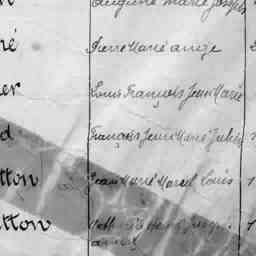 Auguste Marie Joseph
né Pierre Marie ange
er Louis François Jean Marie
d François Jean Marie Jules
tton Jean Marie Marcel Louis
utton